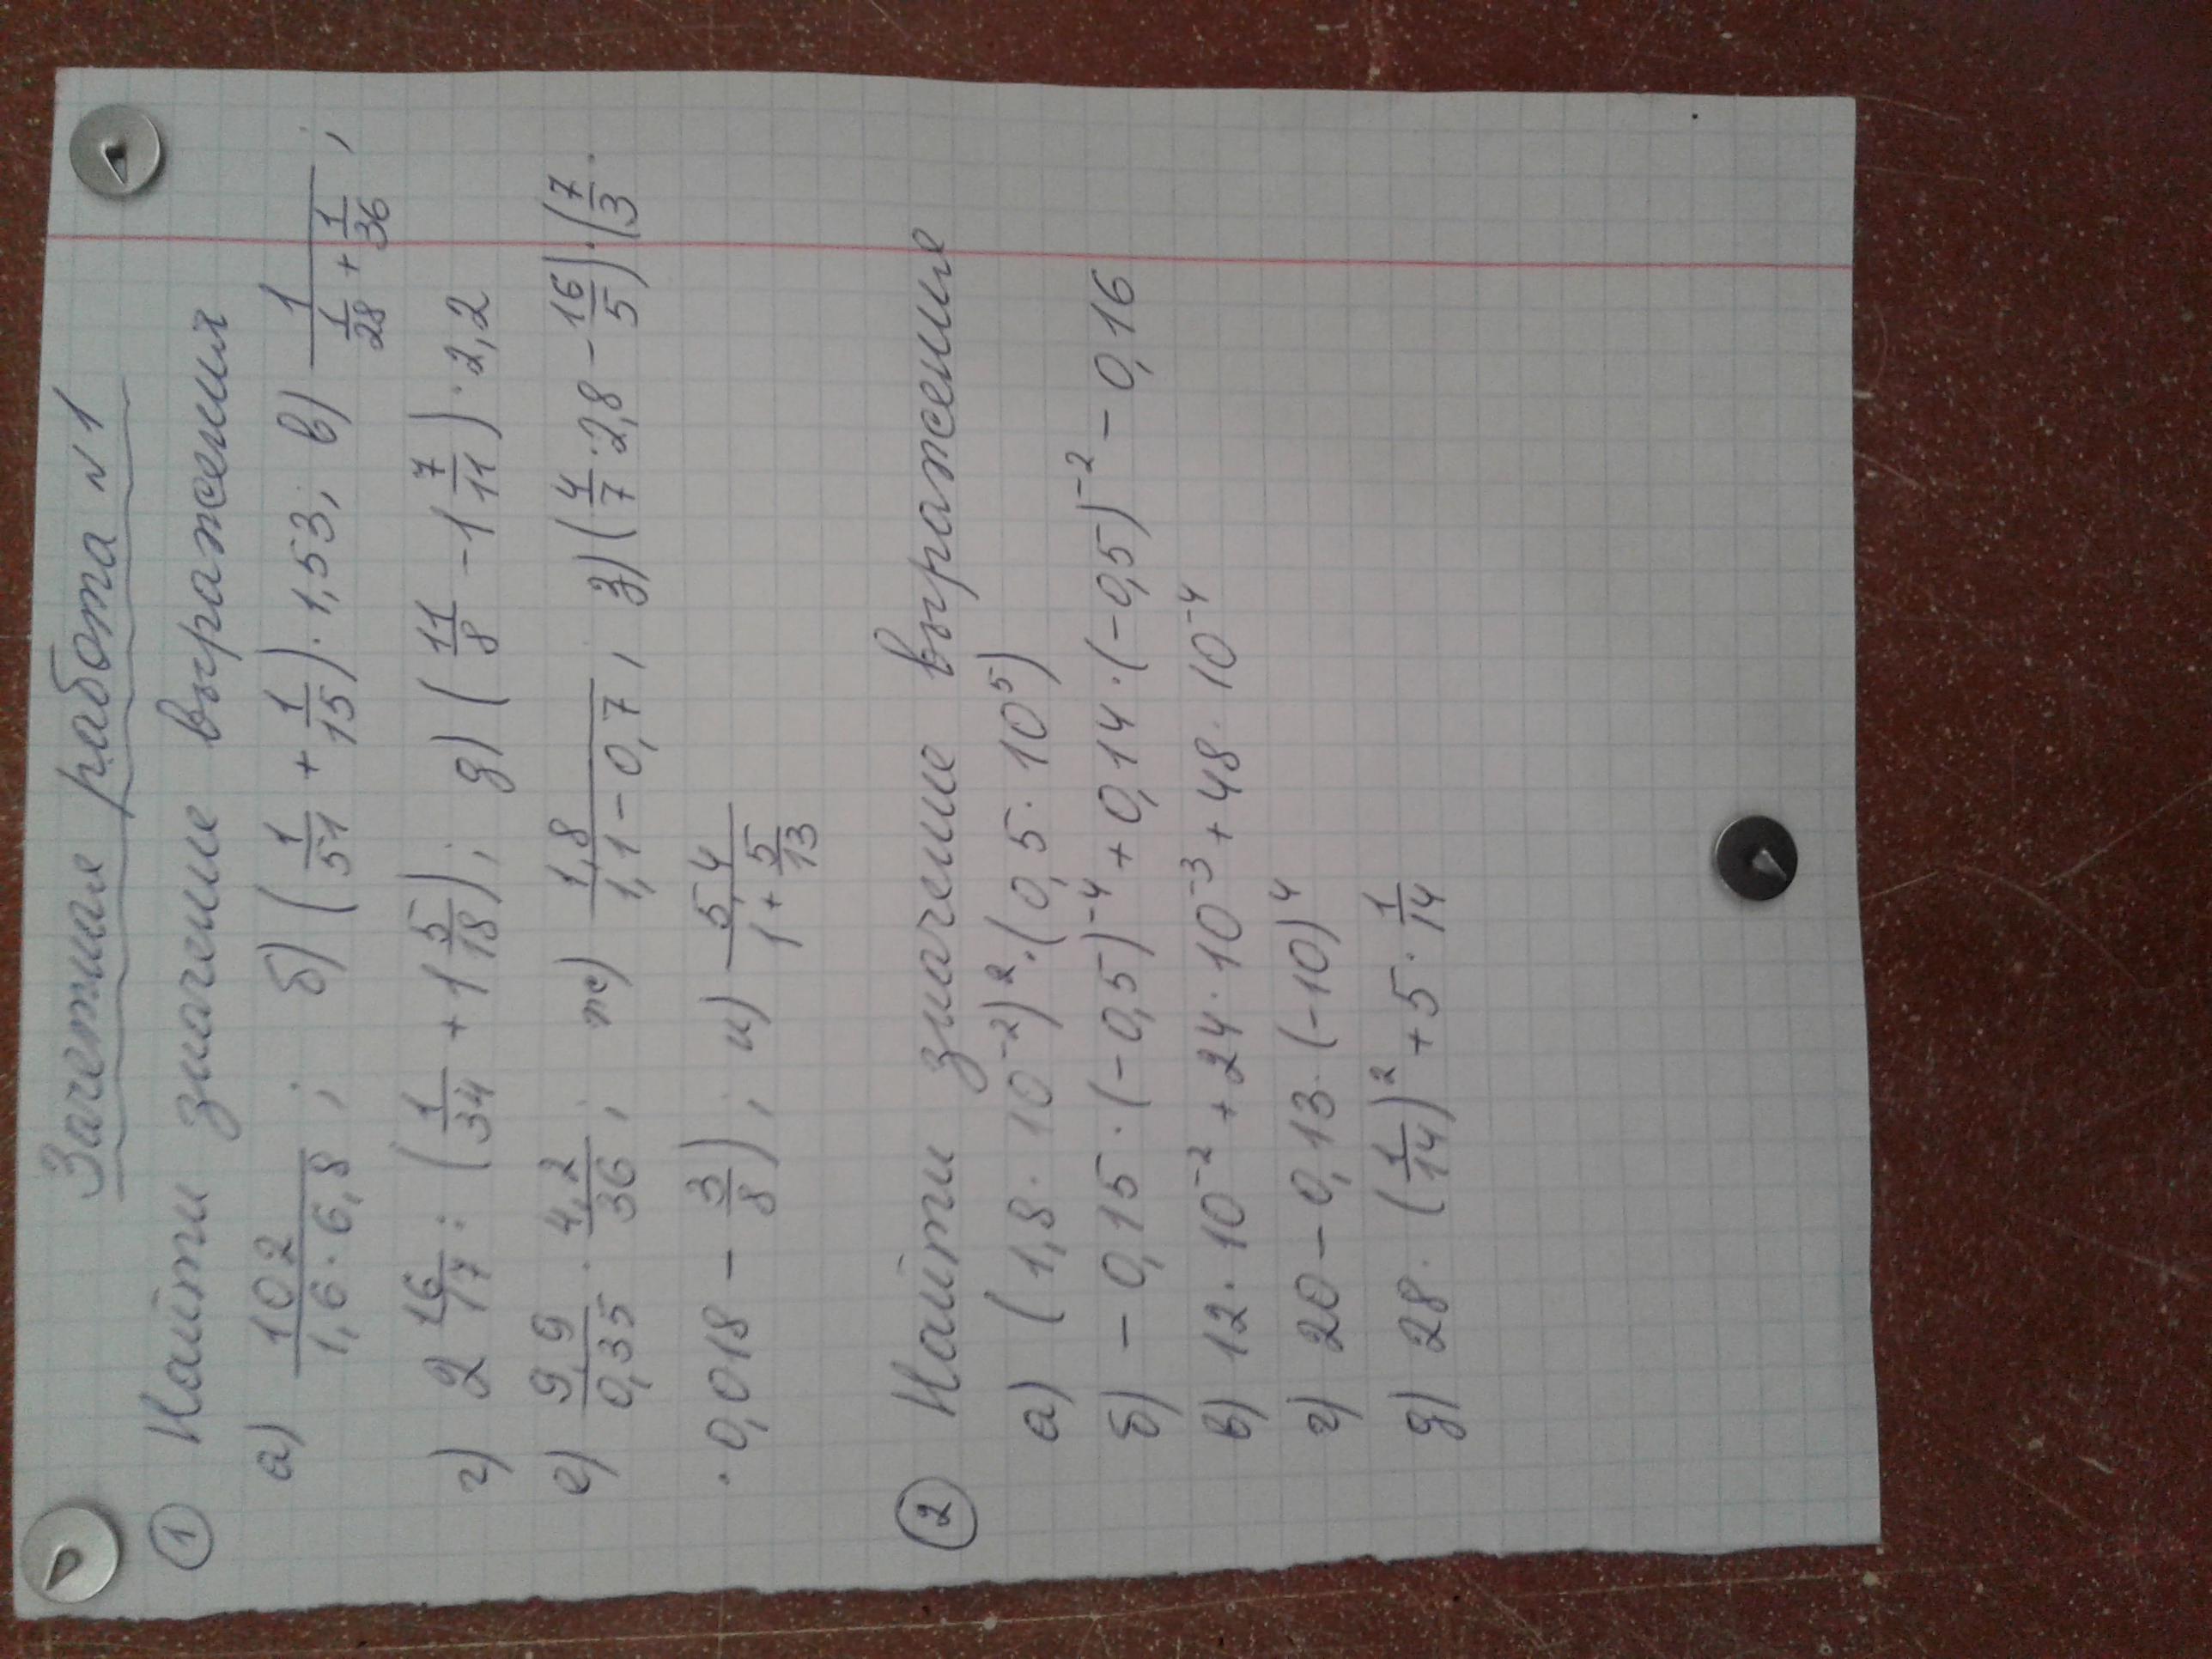 Зачетная работа №1
① Найти значение выражения
а) 102/(1,6 · 6,8); б) (1/51 + 1/15) · 1,53; в) 1/(1/28 + 1/36);
г) 2 16/17 : (1/34 + 1 5/18); д) (11/8 - 1 7/11) · 2,2
е) 9,9/0,35 · 4,2/36; ж) 1,8/(1,1 - 0,7); з) (4/7 · 2,8 - 16/5) · (7/3 ·
· 0,018 - 3/8); и) 5,4/(1 + 5/13)
② Найти значение выражение
а) (1,8 · 10⁻²)² · (0,5 · 10⁵)
б) - 0,15 · (-0,5)⁻⁴ + 0,14 · (-0,5)⁻² - 0,16
в) 12 · 10⁻² + 24 · 10⁻³ + 48 · 10⁻⁴
г) 20 - 0,13 · (-10)⁴
д) 28 · (1/14)² + 5 · 1/14